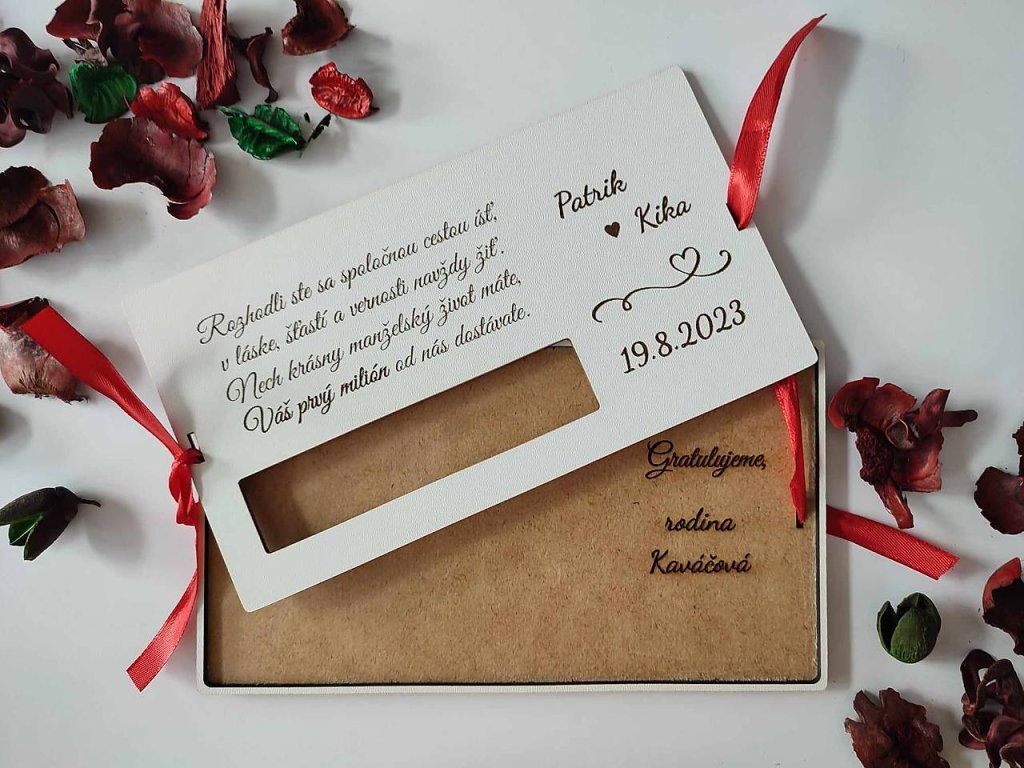 Rozhodli ste sa spoločnou cestou ísť,
v láske, šťastí a vernosti navždy žiť.
Nech krásny manželský život máte,
Váš prvý milión od nás dostávate.
Patrik
♥ Kika
19.8.2023
Gratulujeme,
rodina
Kaváčová